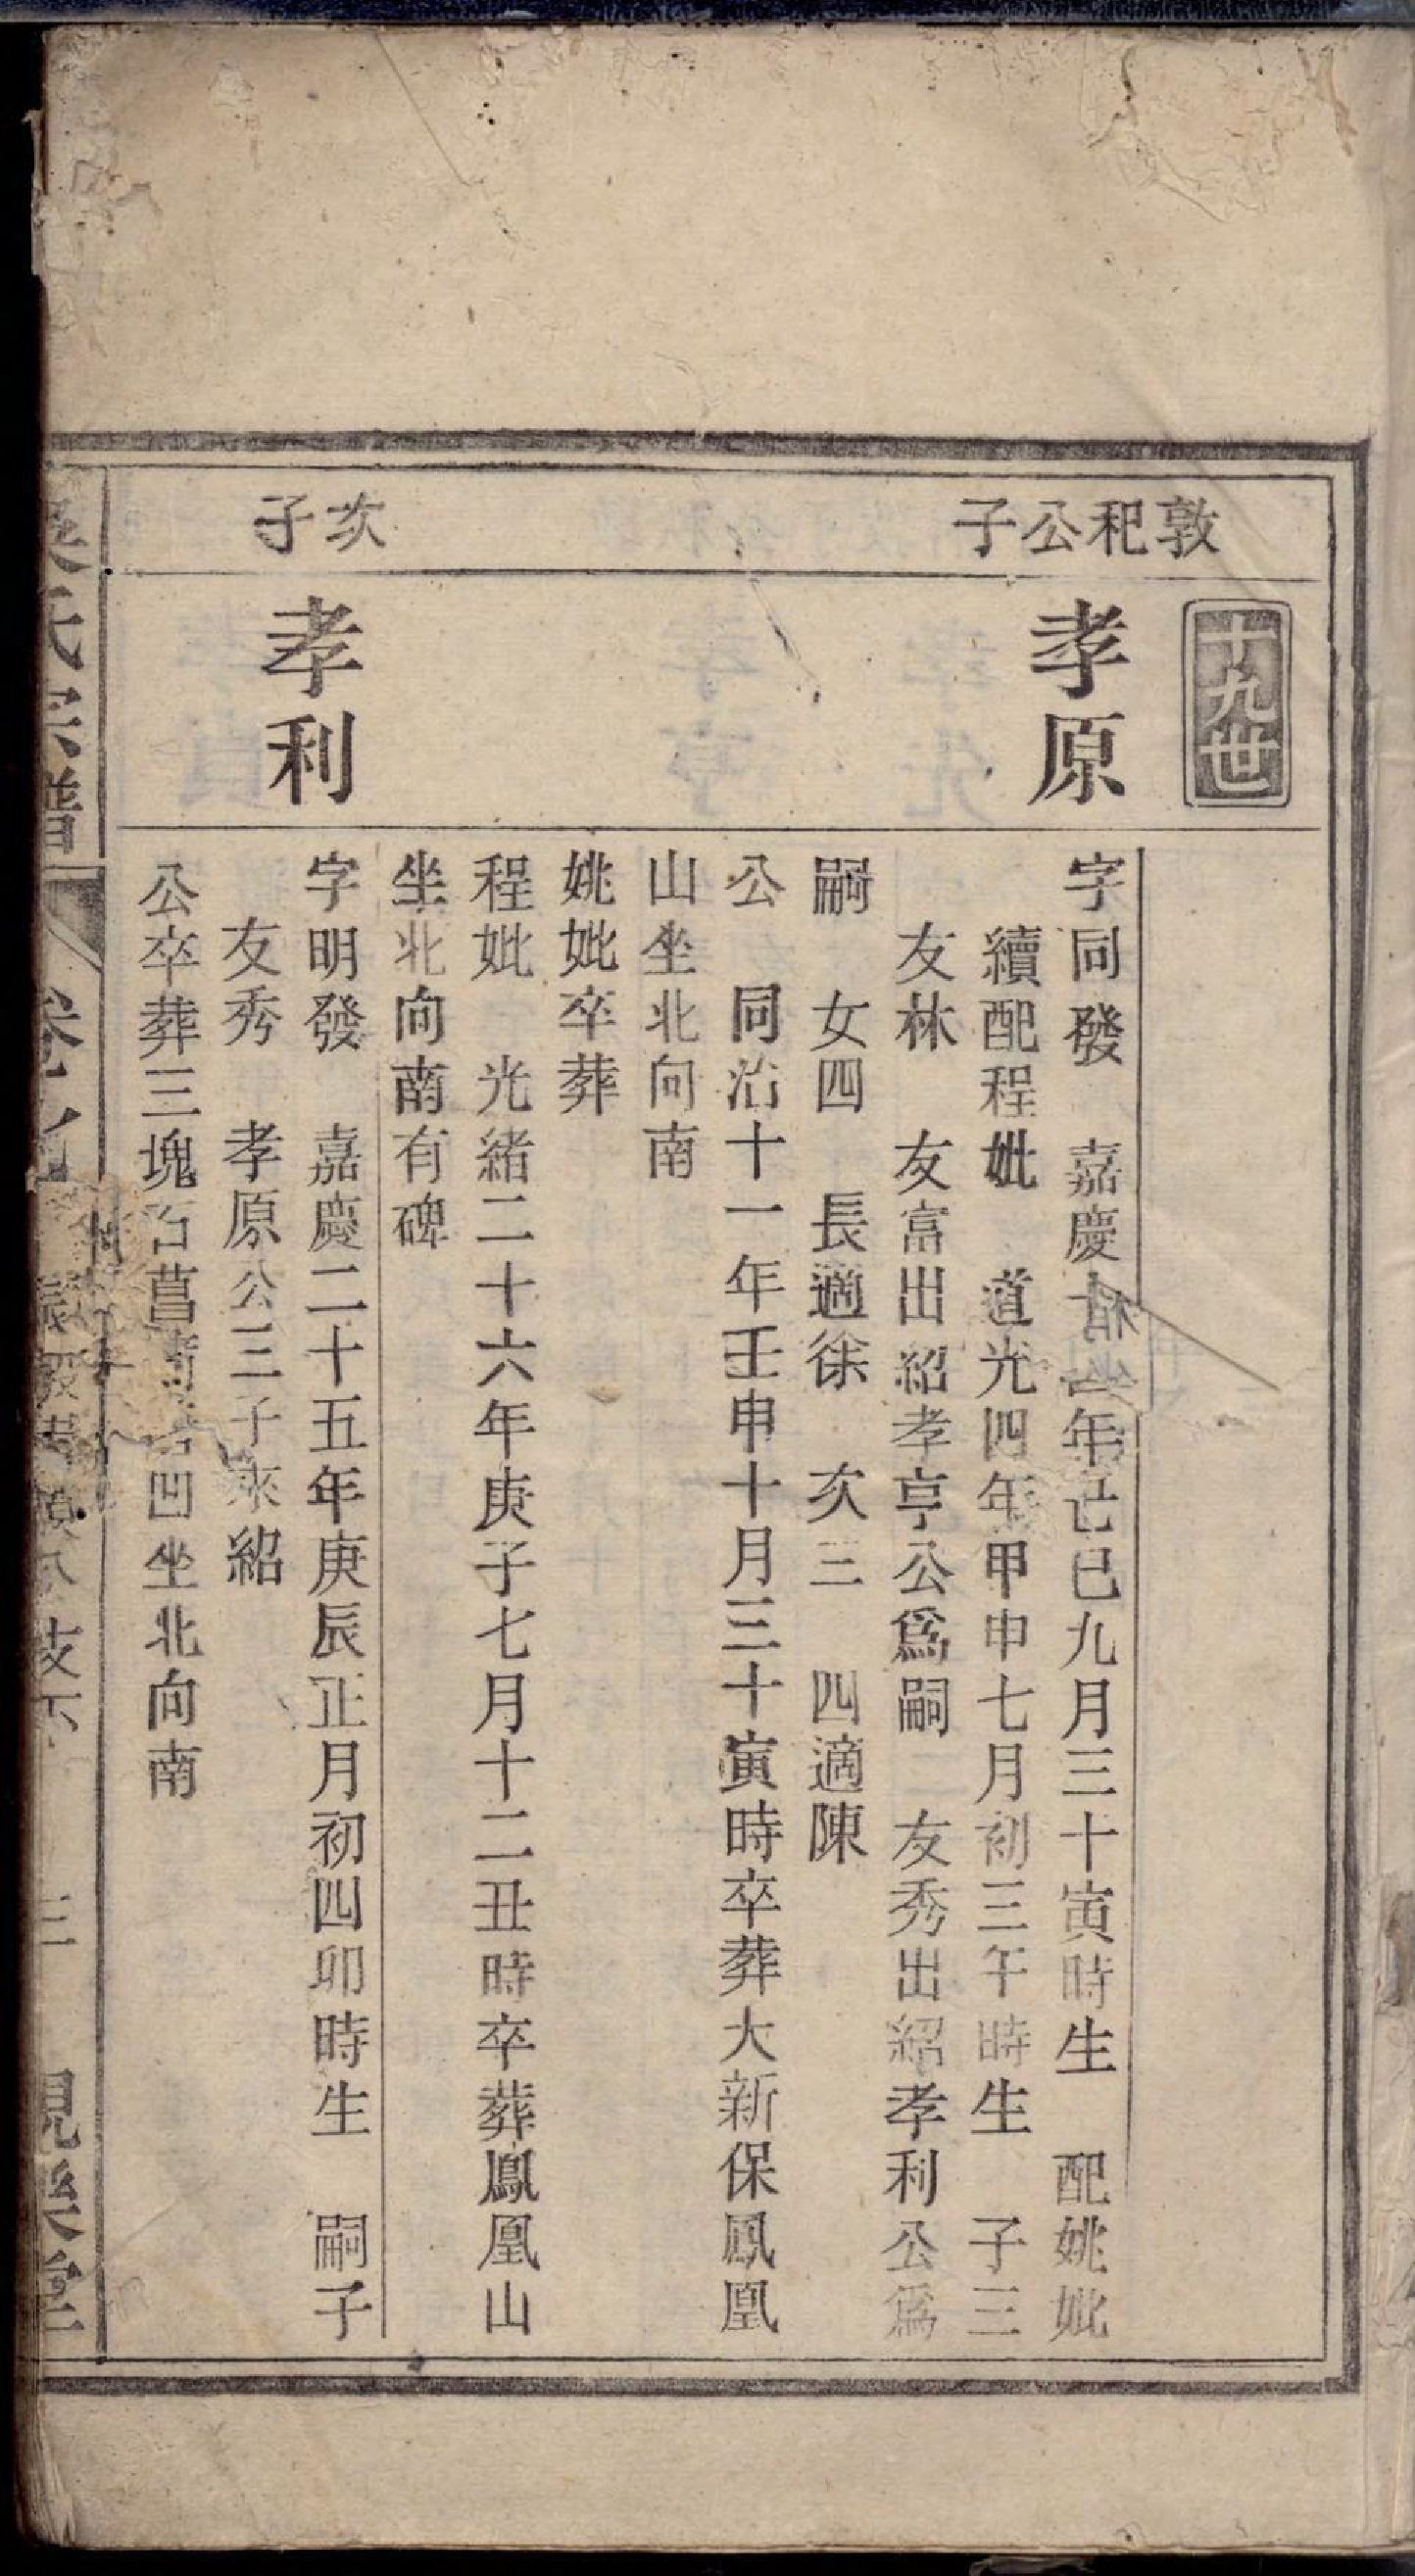 十九世
敦祀公子
孝原
字同發 嘉慶十 年 巳九月三十寅時生 配姚妣
續配程妣 道光四年甲申七月初三午時生 子三
友林 友富出紹孝亨公爲嗣 友秀出紹孝利公爲
嗣 女四 長適徐 次三 四適陳
公 同治十一年壬申十月三十寅時卒葬大新保鳳凰
山坐北向南
姚妣卒葬
程妣 光緒二十六年庚子七月十二丑時卒葬鳳凰山
坐北向南有碑
次子
孝利
字明發 嘉慶二十五年庚辰正月初四卯時生 嗣子
友秀 孝原公三子來紹
公卒葬三塊石菖 凹坐北向南
氏宗譜
三